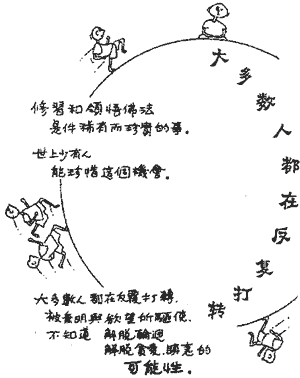 大多数人都在反复打转
修習和領悟佛法
是件稀有而珍寶的事。
世上少有人
能珍惜這個機會。
大多數人都在反覆打轉.
被無明與欲望所驅使.
不知道 解脫輪迴
解脫貪愛.瞋恚的
可能性.